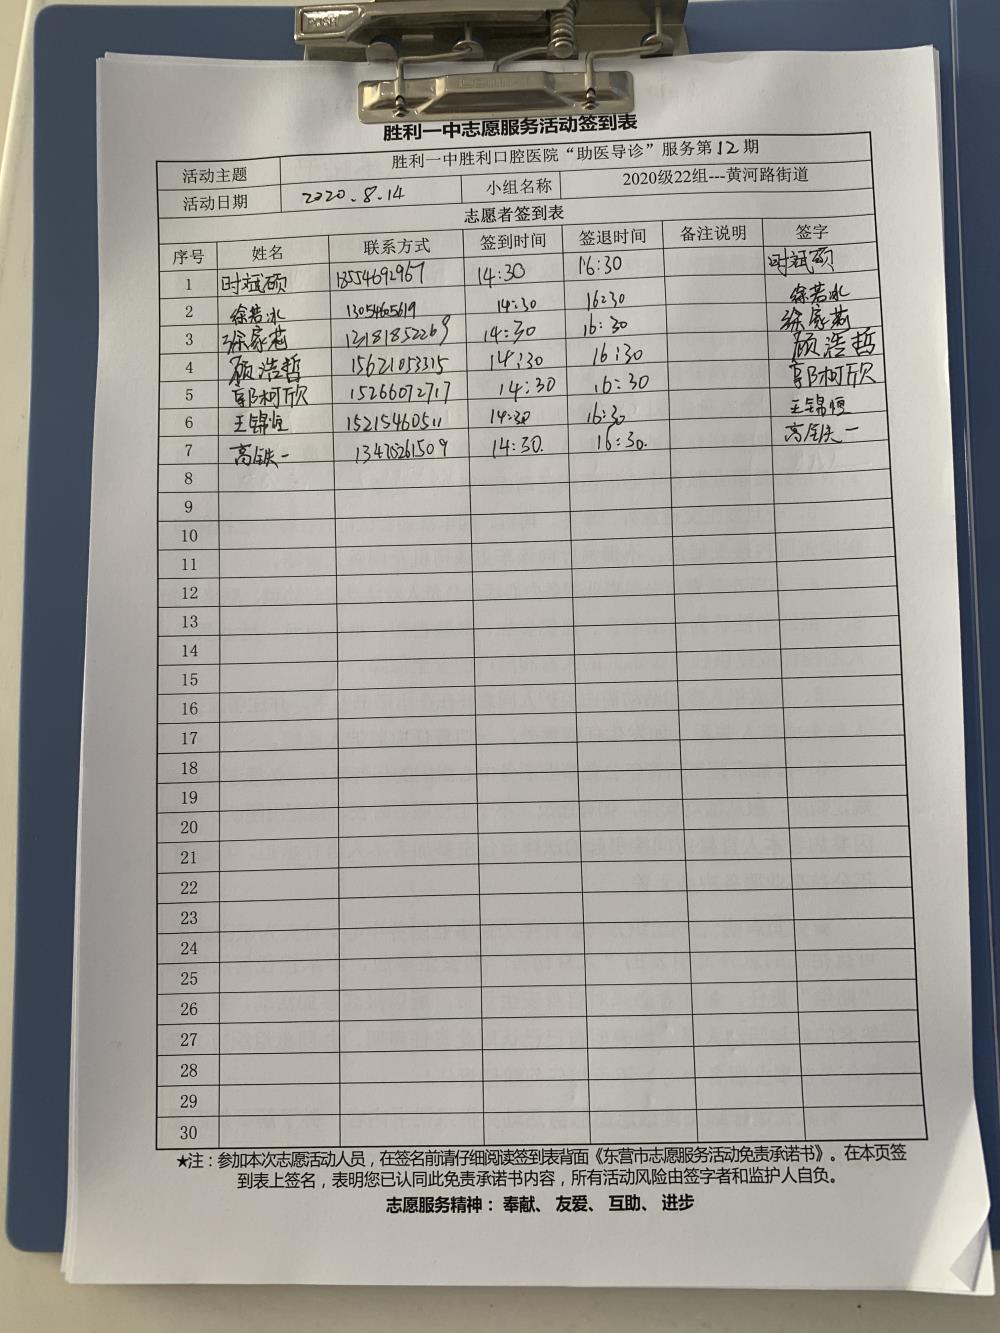 PUSH
胜利一中志愿服务活动签到表
活动主题 胜利一中胜利口腔医院“助医导诊”服务第12期
活动日期 2020.8.14 小组名称 2020级22组---黄河路街道
志愿者签到表
序号 姓名 联系方式 签到时间 签退时间 备注说明 签字
1 时斌硕 13554692967 14:30 16:30 时斌硕
2 徐若冰 13054605619 14:30 16:30 徐若冰
3 徐家莉 14:30 16:30 徐家莉
4 顾浩哲 15621053315 14:30 16:30 顾浩哲
5 郭柯欣 15266072717 14:30 16:30 郭柯欣
6 王锦恒 15215460511 14:30 16:30 王锦恒
7 高铁一 14:30. 16:30. 高铁一
8
9
10
11
12
13
14
15
16
17
18
19
20
21
22
23
24
25
26
27
28
29
30
★注：参加本次志愿活动人员，在签名前请仔细阅读签到表背面《东营市志愿服务活动免责承诺书》。在本页签
到表上签名，表明您已认同此免责承诺书内容，所有活动风险由签字者和监护人自负。
志愿服务精神：奉献、友爱、互助、进步